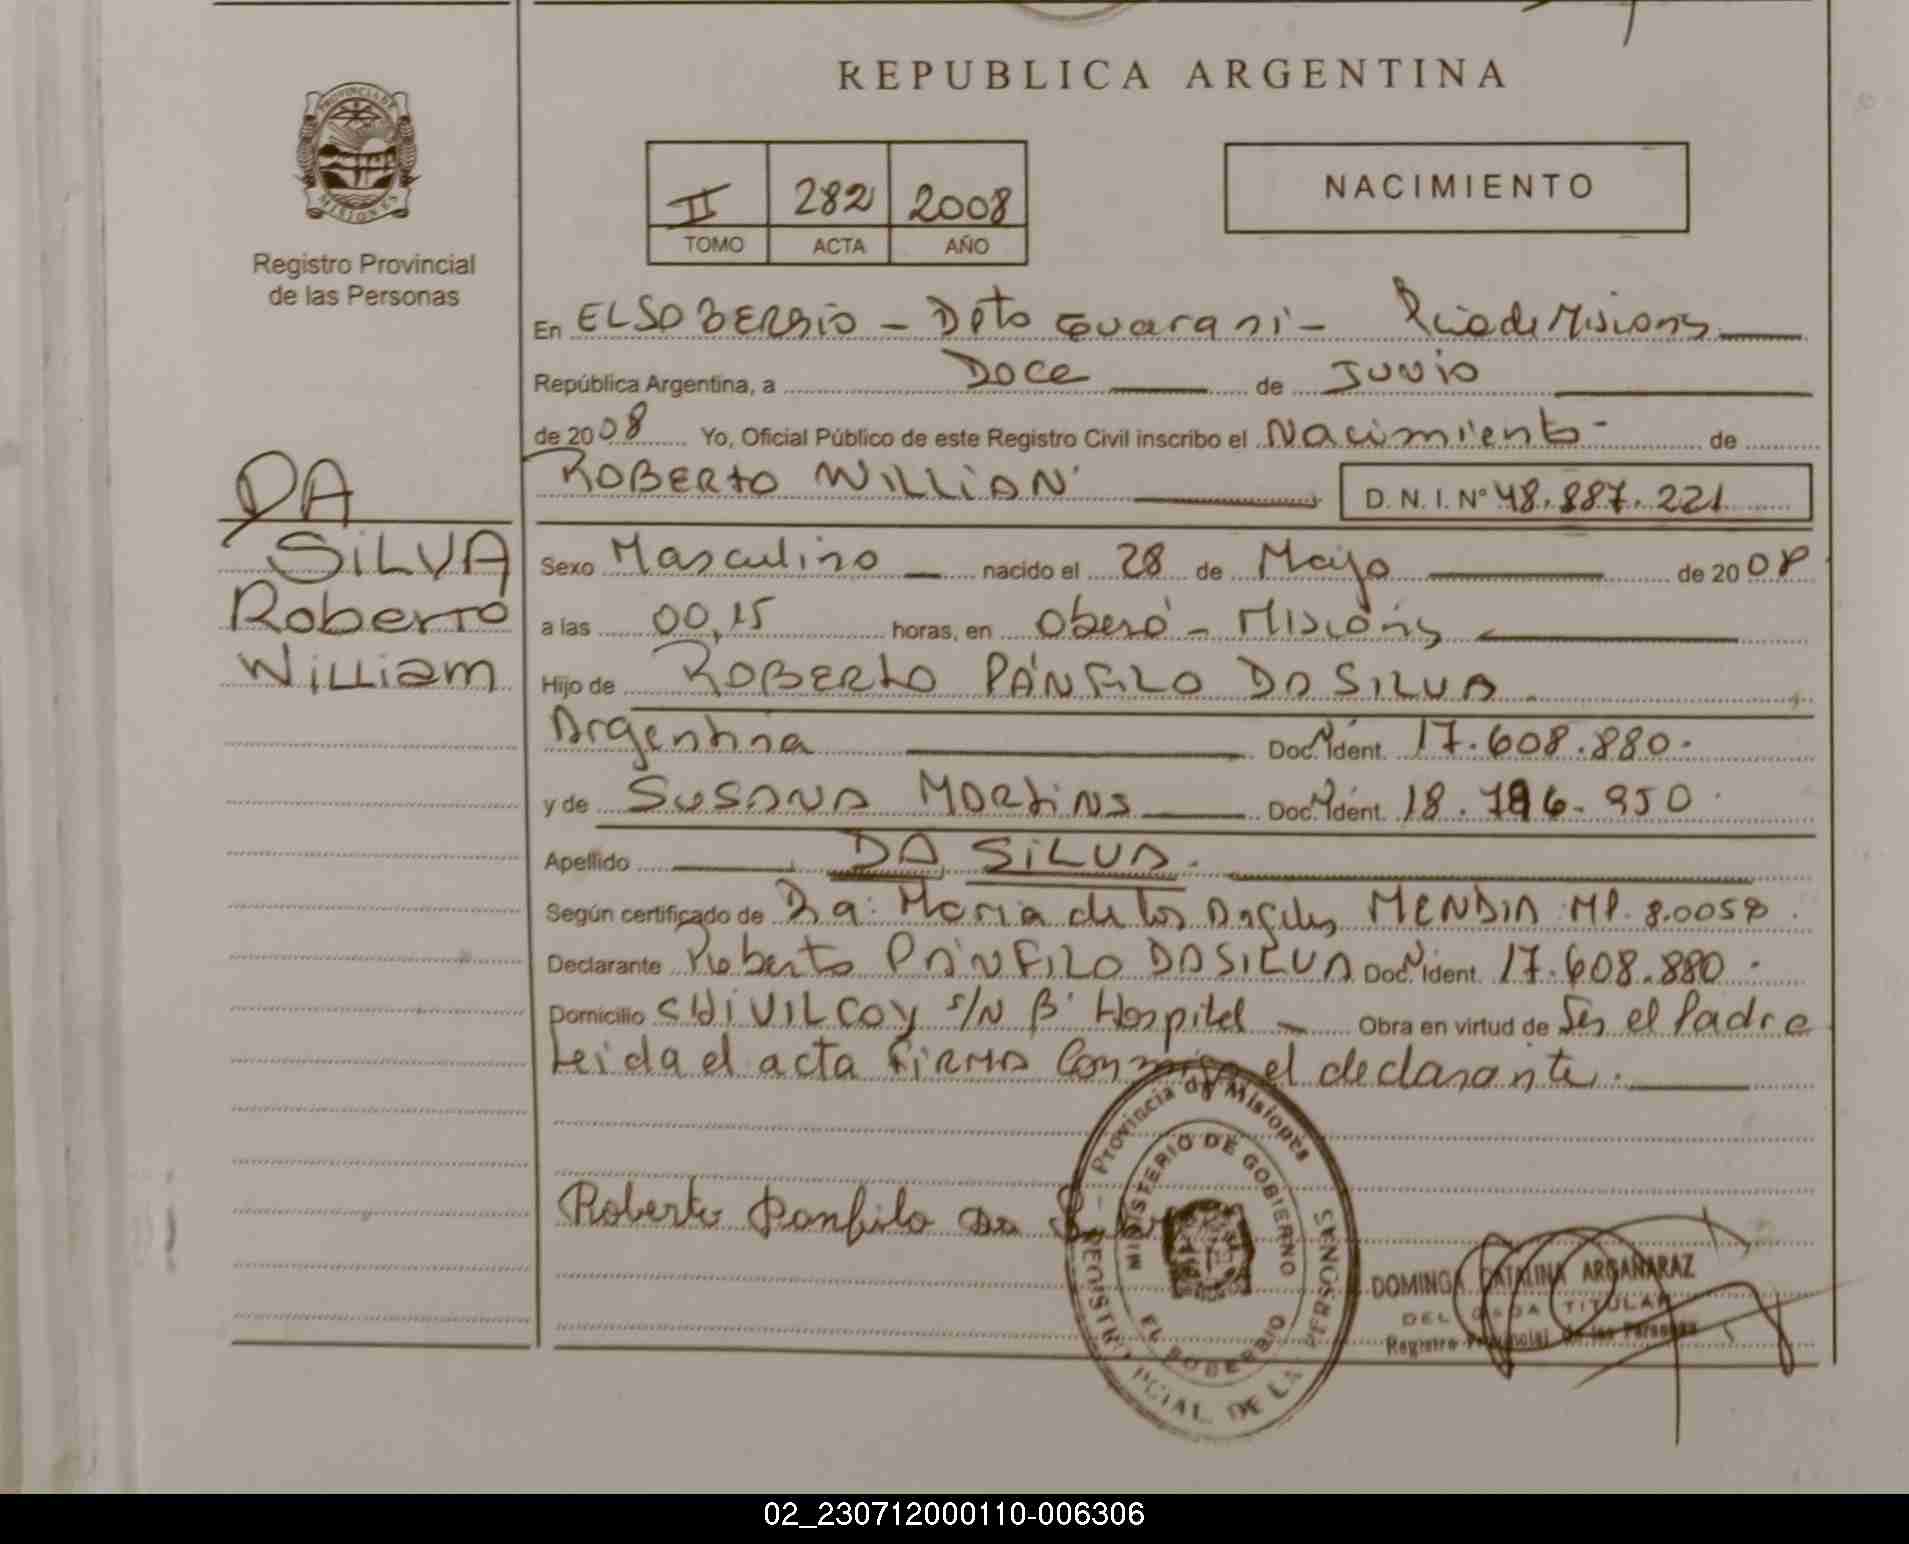 REPUBLICA ARGENTINA
PROVINCIA DE
MISIONES
Registro Provincial
de las Personas
II 282 2008
TOMO ACTA AÑO
NACIMIENTO
En EL SOBERBIO - Dpto Guarani - Pcia de Misiones
República Argentina, a Doce de Junio
de 2008 Yo, Oficial Público de este Registro Civil inscribo el Nacimiento - de
ROBERTO WILLIAN D. N. I. N° 48.887.221
DA
SILVA
Roberto
William
Sexo Masculino nacido el 28 de Mayo de 2008
a las 00,15 horas, en Oberá - Misiones
Hijo de ROBERTO PÁNFILO DA SILVA
Argentina Doc. Ident. 17.608.880.
y de SUSANA MARTINS Doc. Ident. 18.796.950
Apellido DA SILVA.
Según certificado de Dra: Maria de los Angeles MENDIA MP. 8.0058
Declarante Roberto PÁNFILO DA SILVA Doc. Ident. 17.608.880.
Domicilio CHIVILCOY S/N B° Hospital Obra en virtud de Ser el Padre
Leida el acta FIRMA Conmigo el declarante.
Roberto Panfilo Da Silva
Provincia de Misiones
MINISTERIO DE GOBIERNO
EL SOBERBIO
REGISTRO PCIAL. DE LAS PERSONAS
DOMINGA CATALINA ARGAÑARAZ
DELEGADA TITULAR
Registro Provincial de las Personas
02_230712000110-006306